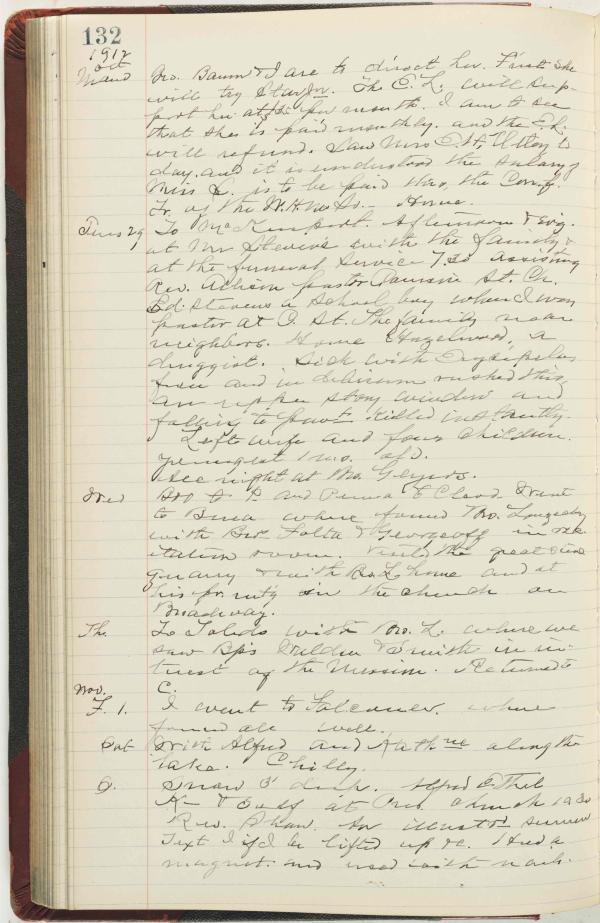 132
1912
Oct
Bro. Baum & I are to direct her. First she
will try Slavon. The C. E. will sup-
port her at per month. I am to see
that she is paid monthly. and the E. L.
will refund. Saw Mrs. C. H. to
day. and it is understood the salary of
Miss L. is to be paid thro. the Conf.
Tr. of the W. H. M. So. — Home.
Tues 29 To McKeesport. Afternoon & Evg.
at Mr Stevens with the family &
at the funeral service 7.30 assisting
Rev. Allison pastor St. Ch.
Ed. Stevens a school boy when I was
pastor at St. The family near
neighbors. Home Hazelwood, a
druggist. Sick with Erysipelas
fever and in delirium rushed thro
an upper story window and
falling to pavt killed instantly.
Left wife and four children.
youngest 1 mo. old.
night at Mr.
Wed B&O to P. and Penna to Cleve. Went
to Berea where found Bro.
with Bros. Folta & Georgeoff in rec-
itation room. Visited the great stone
quarry & with Bro. L. home and at
his in the church on
Broadway.
Th. To Toledo with Bro. L. where we
saw Bps & Smith in in-
trest of the Mission. Returned to
Nov. C.
F. 1. I went to Falconer. where
found all well.
Sat With Alfred and Kathne along the
lake. Chilly.
S. Snow 3' deep. Alfred Ethel
K— & self at Ch church 10 30
Rev. Shaw. An illustrd sermon
Text I if I be lifted up &c. Used a
magnet. and used with nails.